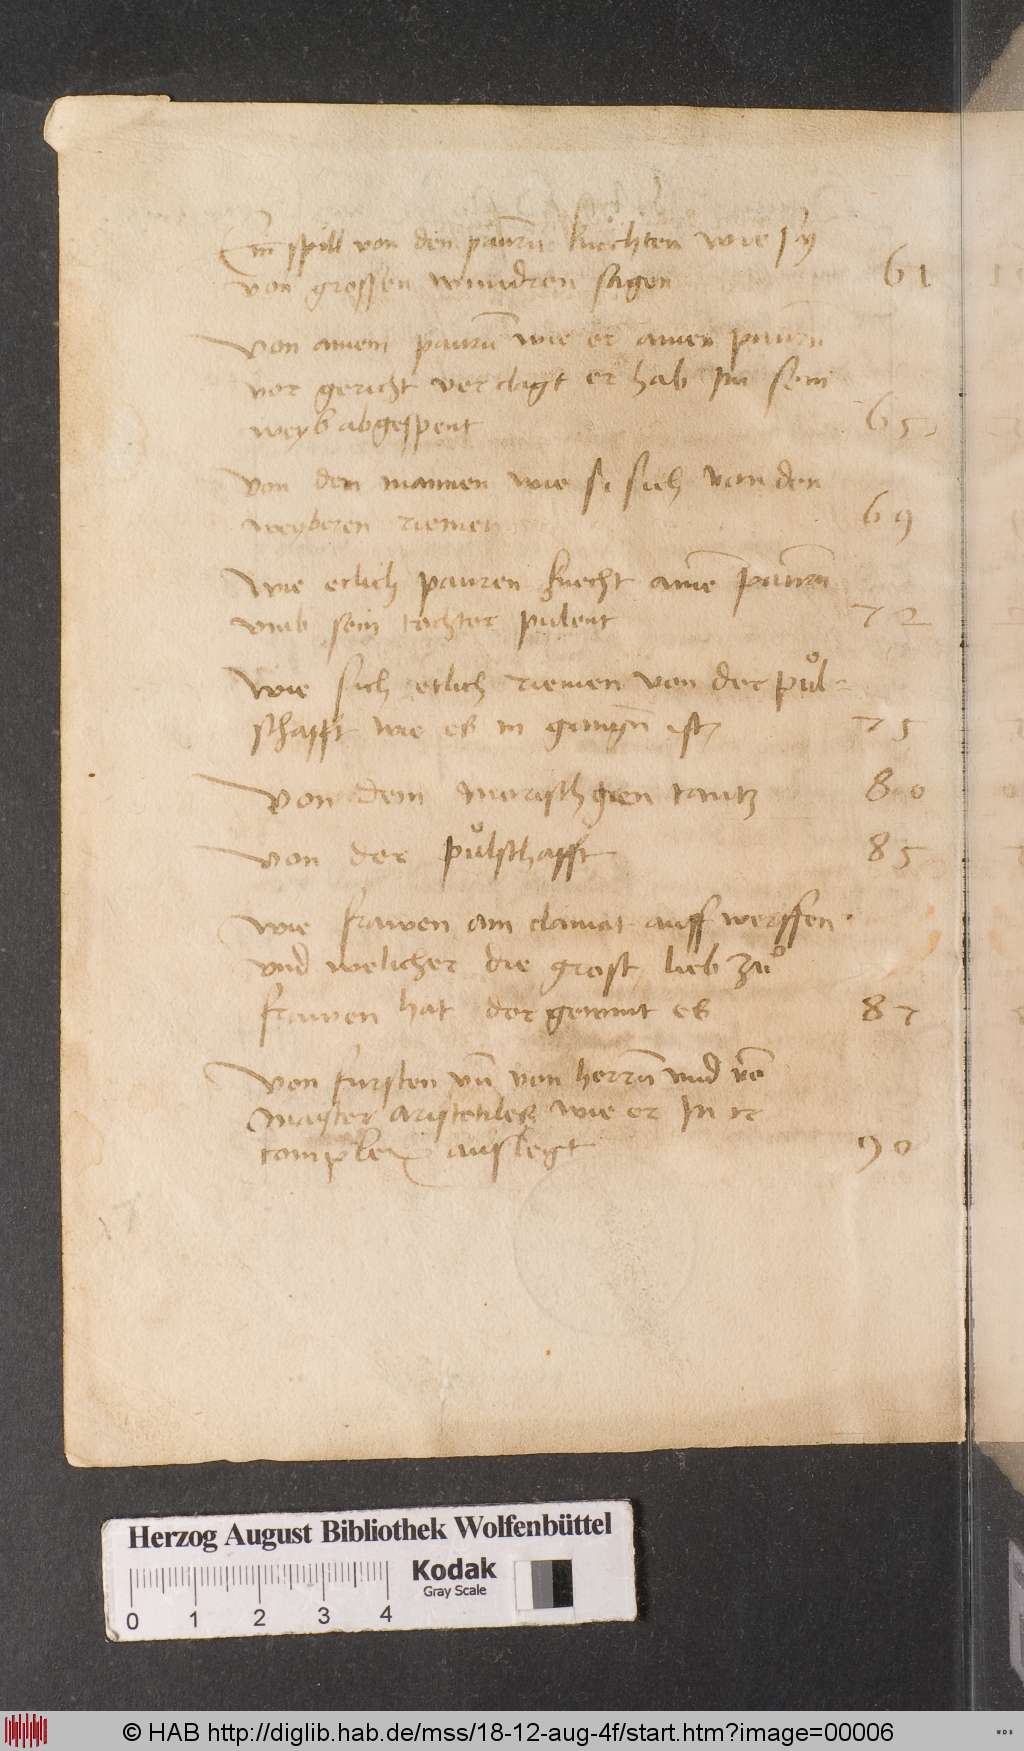 Ein spill von den paurñ knechten wie sy
von grossen wundren sagen 61
von ainem paurñ wie er ainen paurñ
vor gericht verclagt er hab im sein
weyb abgespent 65
von den mannen wie si sich von den
weyberen riemen 69
wie etlich pauren knecht ainē paurñ
vmb sein tochter pulent 72
wie sich etlich riemen von der půl-
schafft wie es in gangñ ist 75
von dem mörischgien tantz 80
von der půlschafft 85
wie frawen ain clainat auff werffen
vnd welicher die grost lieb zů
frawen hat der gewint es 87
von fursten vñ von herrñ vnd vō
mayster aristotiles wie er in ir
complex auslegt 90
Herzog August Bibliothek Wolfenbüttel
Kodak
Gray Scale
0 1 2 3 4
© HAB http://diglib.hab.de/mss/18-12-aug-4f/start.htm?image=00006